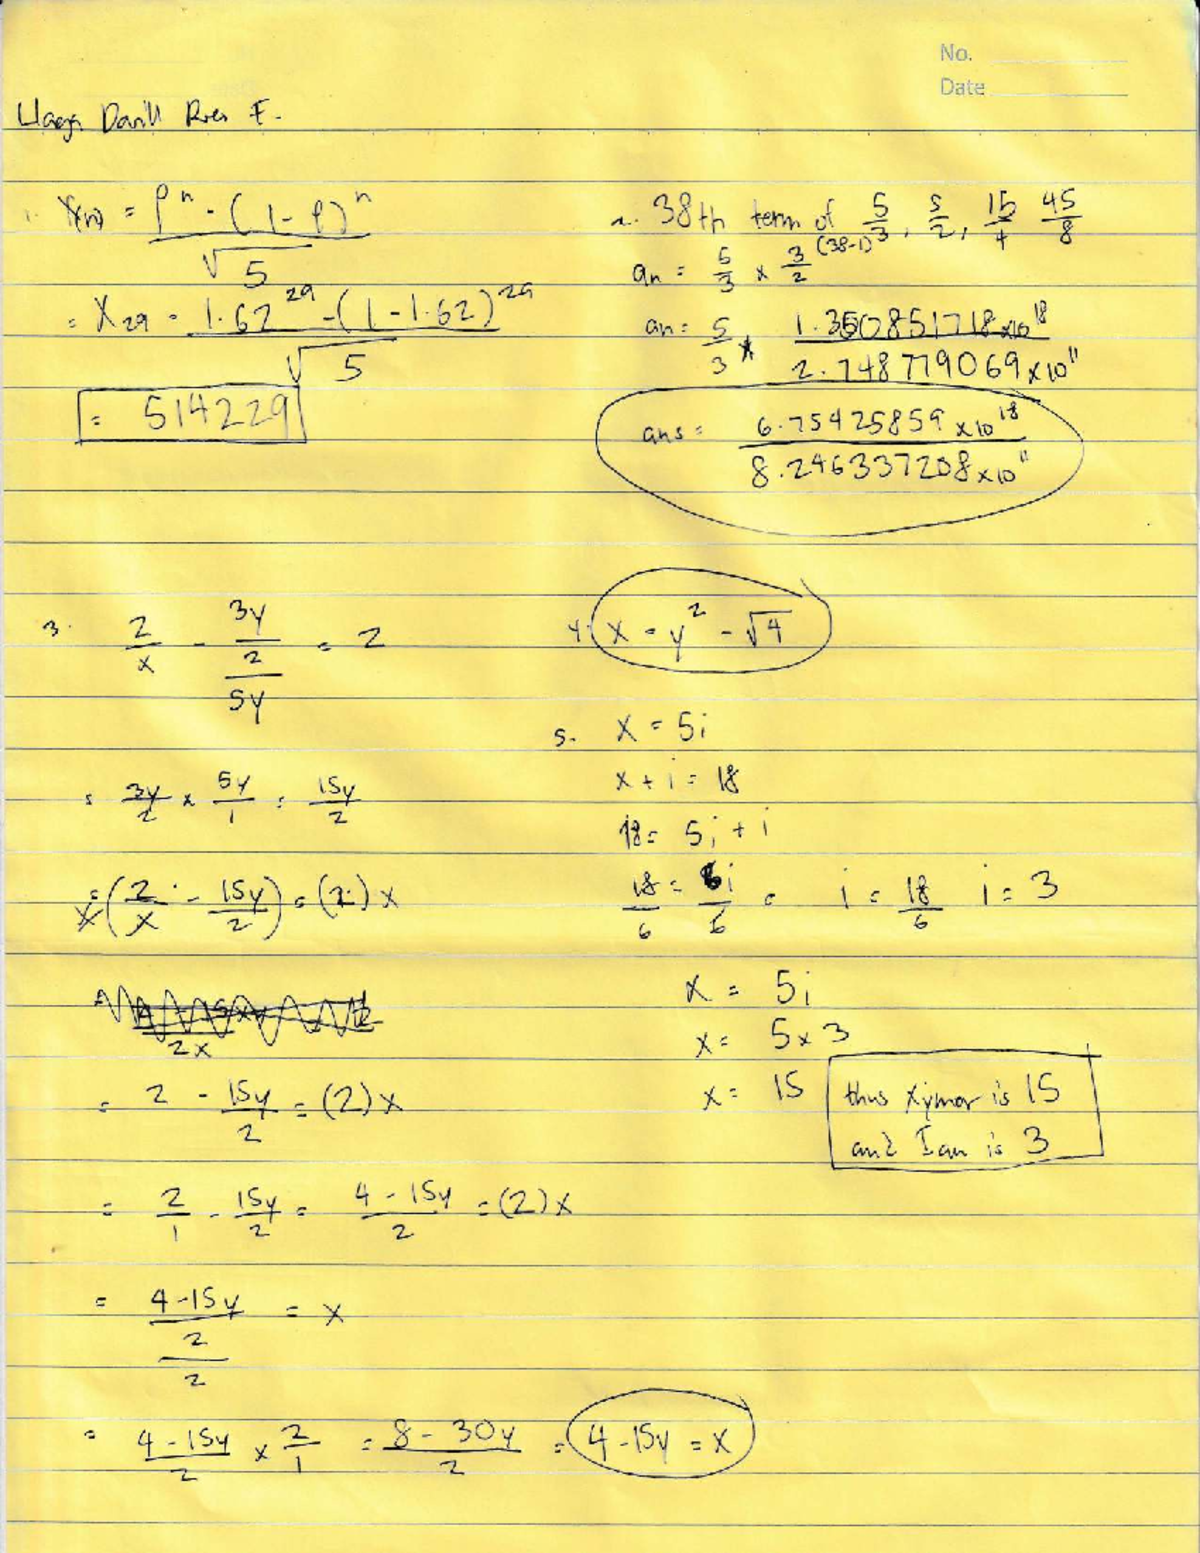 No.
Date
1. X(n) = φⁿ - (1-φ)ⁿ / √5
= X₂₉ = 1.62²⁹ - (1-1.62)²⁹ / √5
= 514229
2. 38th term of 5/3, 5/2, 15/4 45/8
an = 5/3 x 3/2 ⁽³⁸⁻¹⁾
an = 5/3 x 1.3507851718x10¹⁸ / 2.748779069x10¹¹
ans = 6.75425859 x10¹⁸ / 8.246337208x10¹¹
3. 2/x - 3y/2 / 2/5y = 2
= 3y/2 x 5y/1 = 15y/2
= x(2/x - 15y/2) = (2)x
2x
= 2 - 15y/2 = (2)x
= 2/1 - 15y/2 = 4-15y/2 = (2)x
= 4-15y/2 / 2 = x
= 4-15y/2 x 2/1 = 8-30y/2 = 4-15y = x
4. x = y² - √4
5. x = 5i
x + i = 18
18 = 5i + i
18/6 = 6i/6 = i = 18/6 i = 3
x = 5i
x = 5x3
x = 15
thus Xymor is 15
and Ian is 3